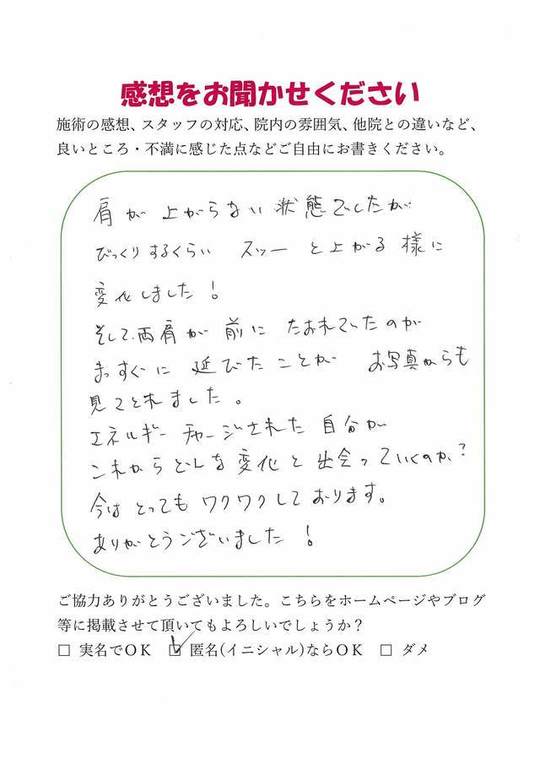 感想をお聞かせください
施術の感想、スタッフの対応、院内の雰囲気、他院との違いなど、
良いところ・不満に感じた点などご自由にお書きください。
肩が上がらない状態でしたが
びっくりするくらい スッーと上がる様に
変化しました！
そして、両肩が前にたおれていたのが
まっすぐに延びたことがお写真からも
見てとれました。
エネルギーチャージされた自分が
これからどんな変化と出会っていくのか？
今はとってもワクワクしております。
ありがとうございました！
ご協力ありがとうございました。こちらをホームページやブログ
等に掲載させて頂いてもよろしいでしょうか？
□ 実名でＯＫ ☑ 匿名(イニシャル)ならＯＫ □ ダメ